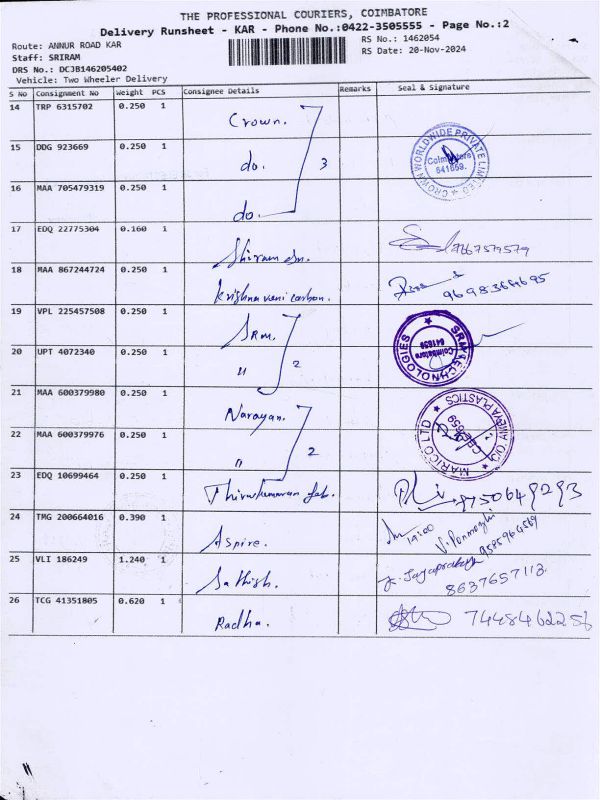 THE PROFESSIONAL COURIERS, COIMBATORE
Delivery Runsheet - KAR - Phone No.:0422-3505555 - Page No.:2
Route: ANNUR ROAD KAR
RS No.: 1462054
Staff: SRIRAM
RS Date: 20-Nov-2024
DRS No.: DCJB146205402
Vehicle: Two Wheeler Delivery
S No Consignment No Weight PCS Consignee Details Remarks Seal & Signature
14 TRP 6315702 0.250 1 Crown.
15 DDG 923669 0.250 1 do. 3
CROWN WORLDWIDE PRIVATE LIMITED
Coimbatore
641659.
16 MAA 705479319 0.250 1 do.
17 EDQ 22775304 0.160 1
18 MAA 867244724 0.250 1 Krishna veni carbon.
19 VPL 225457508 0.250 1 SRM.
20 UPT 4072340 0.250 1 " 2
SRM TECHNOLOGIES
Coimbatore
641659
21 MAA 600379980 0.250 1 Narayan.
22 MAA 600379976 0.250 1 " 2
MARICO LTD
PLASTICS
23 EDQ 10699464 0.250 1 Thirukumaran fab.
24 TMG 200664016 0.390 1 Aspire. 14:00
25 VLI 186249 1.240 1 Sathish. 8637657113
26 TCG 41351805 0.620 1 Radha.